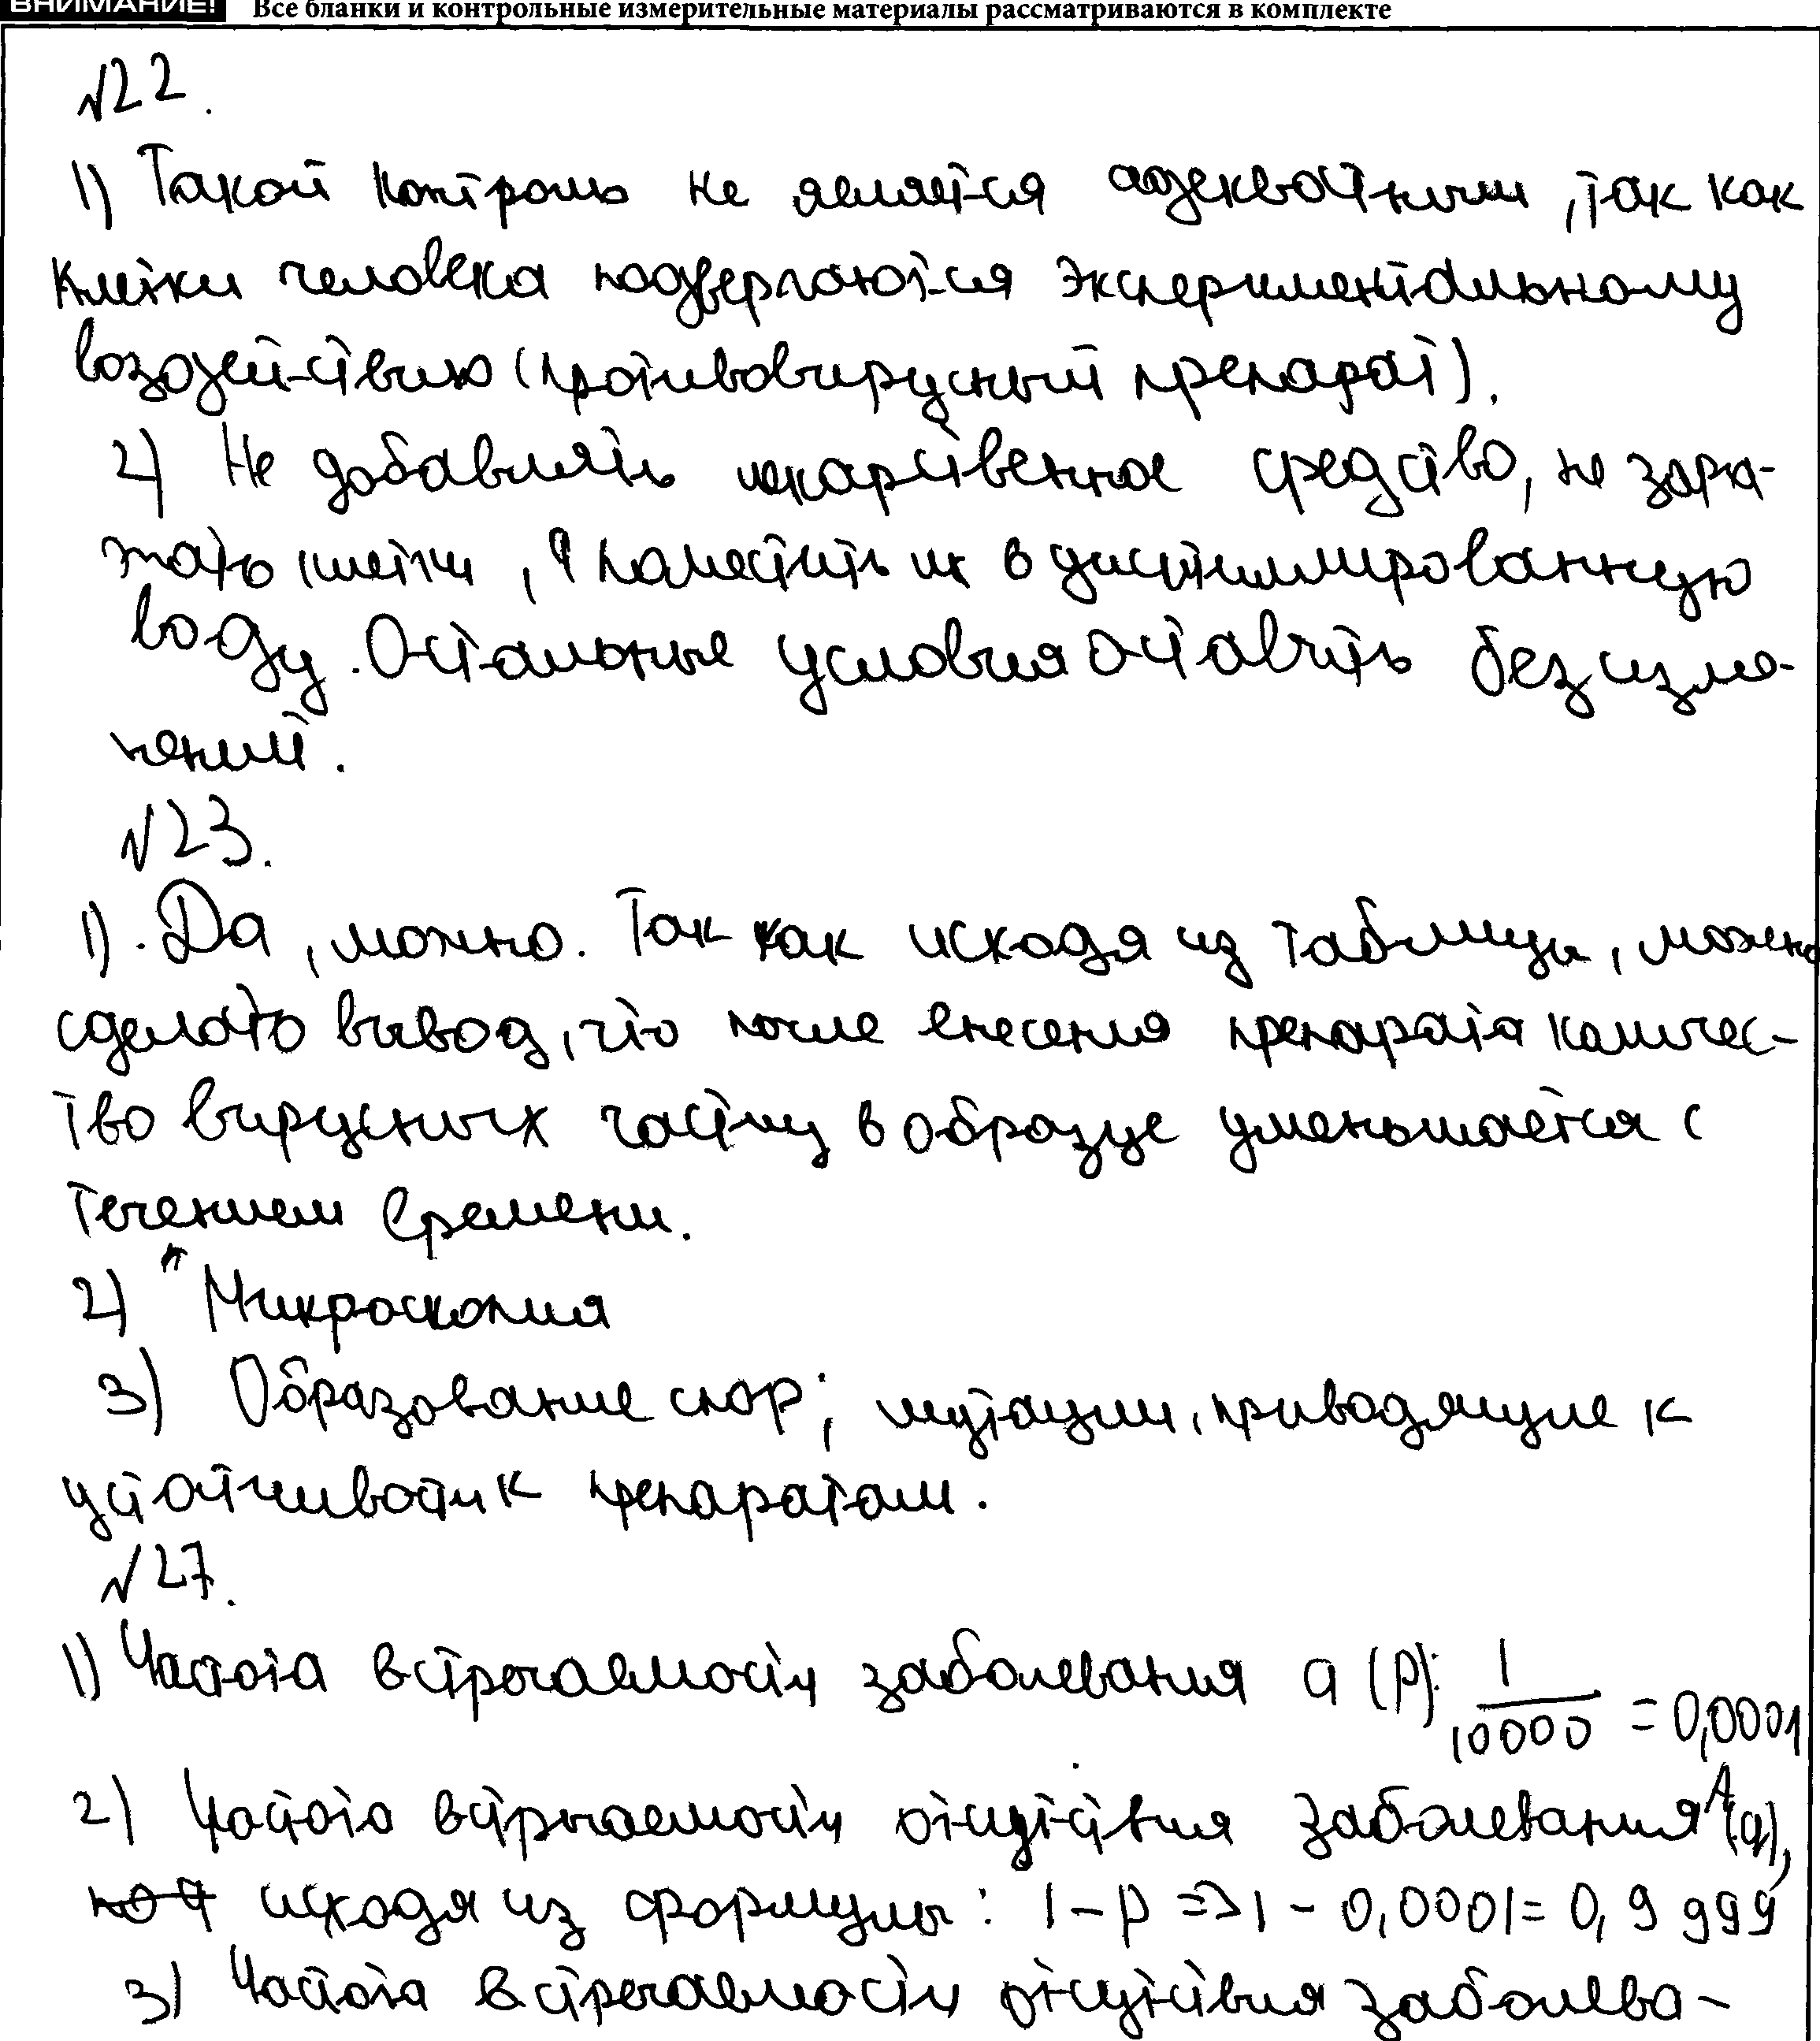 ВНИМАНИЕ! Все бланки и контрольные измерительные материалы рассматриваются в комплекте
№22.
1) Такой контроль не является адекватным, так как
клетки человека подвергаются экспериментальному
воздействию (противовирусный препарат).
2) Не добавлять лекарственное средство, не зара-
жать клетки, а поместить их в дистиллированную
воду. Остальные условия оставить без изме-
нений.
№23.
1). Да, можно. Так как исходя из таблицы, можно
сделать вывод, что после внесения препарата количес-
тво вирусных частиц в образце уменьшается с
течением времени.
2) Микроскопия
3) Образование спор; мутации, приводящие к
устойчивости к препаратам.
№27.
1) Частота встречаемости заболевания a (p): 1/10000 = 0,0001
2) Частота встречаемости отсутствия заболевания A (q),
исходя из формулы: 1 - p => 1 - 0,0001 = 0,9999
3) Частота встречаемости отсутствия заболева-